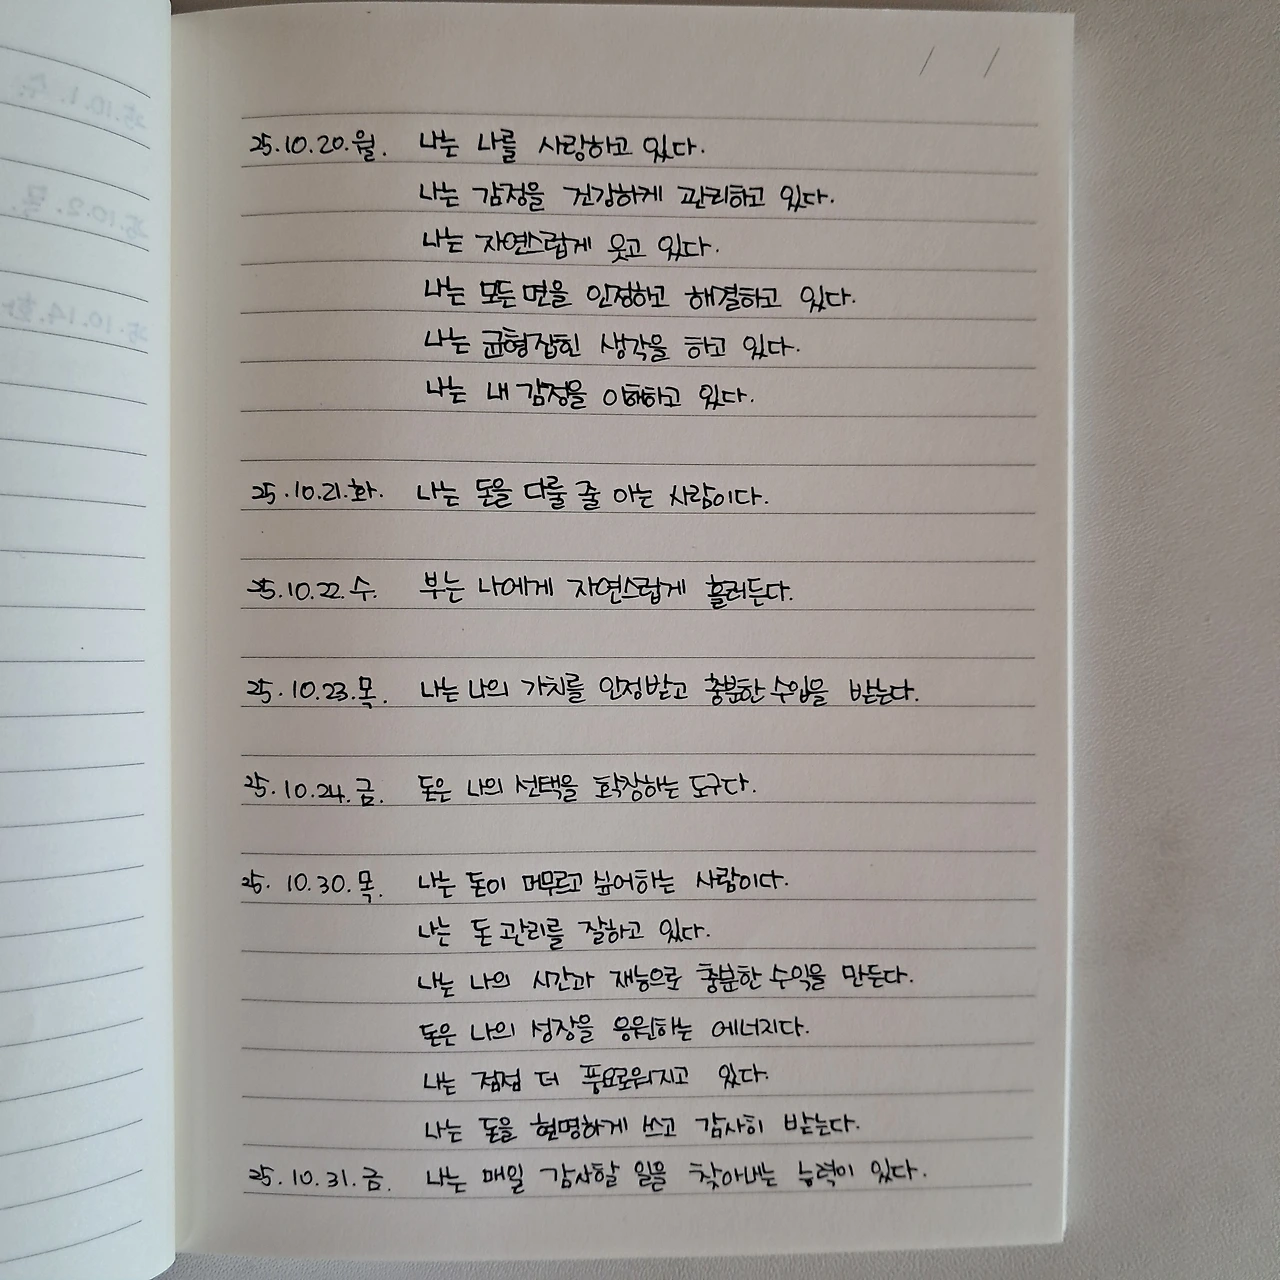 / /
25.10.20.월. 나는 나를 사랑하고 있다.
나는 감정을 건강하게 관리하고 있다.
나는 자연스럽게 웃고 있다.
나는 모든 면을 인정하고 해결하고 있다.
나는 균형잡힌 생각을 하고 있다.
나는 내 감정을 이해하고 있다.
25.10.21.화. 나는 돈을 다룰 줄 아는 사람이다.
25.10.22.수. 부는 나에게 자연스럽게 흘러든다.
25.10.23.목. 나는 나의 가치를 인정받고 충분한 수입을 받는다.
25.10.24.금. 돈은 나의 선택을 확장하는 도구다.
25.10.30.목. 나는 돈이 머무르고 싶어하는 사람이다.
나는 돈 관리를 잘하고 있다.
나는 나의 시간과 재능으로 충분한 수익을 만든다.
돈은 나의 성장을 응원하는 에너지다.
나는 점점 더 풍요로워지고 있다.
나는 돈을 현명하게 쓰고 감사히 받는다.
25.10.31.금. 나는 매일 감사할 일을 찾아내는 능력이 있다.